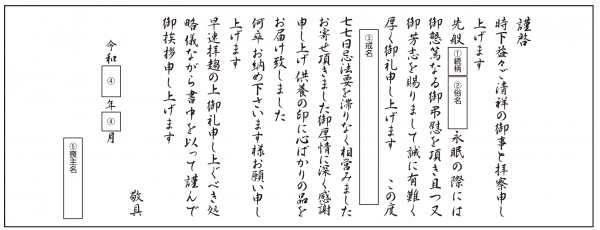 謹啓
時下益々ご清祥の御事と拝察申し
上げます
先般 ①続柄 ②俗名 永眠の際には
御懇篤なる御弔慰を頂き且つ又
御芳志を賜りまして誠に有難く
厚く御礼申し上げます この度
③戒名
七七日忌法要を滞りなく相営みました
お寄せ頂きました御厚情に深く感謝
申し上げ 供養の印に心ばかりの品を
お届け致しました
何卒 お納め下さいます様お願い申し
上げます
早速拝趨の上御礼申し上ぐべき処
略儀ながら書中を以って謹んで
御挨拶申し上げます
敬具
令和 ④ 年 ④ 月
⑤喪主名